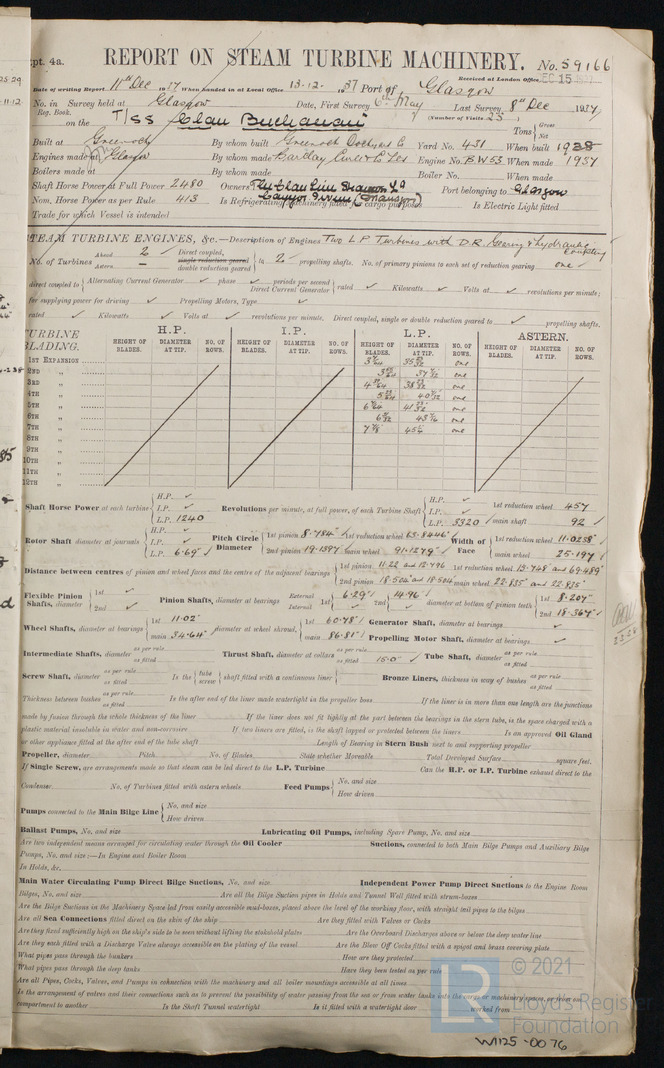 pt. 4a. REPORT ON STEAM TURBINE MACHINERY. No. 59166
Received at London Office DEC 15 1937
Date of writing Report 11th Dec 1937 When handed in at Local Office 13.12.1937 Port of Glasgow
No. in Reg. Book. Survey held at Glasgow Date, First Survey 6th May Last Survey 8th Dec 1937
(Number of Visits 25)
on the T/SS Clan Buchanan Tons Gross Net
Built at Greenock By whom built Greenock Dockyd Co Yard No. 431 When built 1938
Engines made at Glasgow By whom made Barclay Curle & Co Ltd Engine No. BW53 When made 1937
Boilers made at By whom made Boiler No. When made
Shaft Horse Power at Full Power 2480 Owners The Clan Line Steamers Ld Port belonging to Glasgow
Cayzer Irvine (Managers)
Nom. Horse Power as per Rule 413 Is Refrigerating Machinery fitted for cargo purposes Is Electric Light fitted
Trade for which Vessel is intended
STEAM TURBINE ENGINES, &c.—Description of Engines Two L.P. Turbines with D.R. Gearing & hydraulic coupling
No. of Turbines Ahead 2 ✓ Astern — Direct coupled, single reduction geared double reduction geared to 2 ✓ propelling shafts. No. of primary pinions to each set of reduction gearing one ✓
direct coupled to Alternating Current Generator ✓ phase ✓ periods per second Direct Current Generator rated ✓ Kilowatts ✓ Volts at ✓ revolutions per minute;
for supplying power for driving ✓ Propelling Motors, Type ✓
rated ✓ Kilowatts ✓ Volts at ✓ revolutions per minute. Direct coupled, single or double reduction geared to ✓ propelling shafts.
TURBINE BLADING. H.P. I.P. L.P. ASTERN.
HEIGHT OF BLADES. DIAMETER AT TIP. NO. OF ROWS. HEIGHT OF BLADES. DIAMETER AT TIP. NO. OF ROWS. HEIGHT OF BLADES. DIAMETER AT TIP. NO. OF ROWS. HEIGHT OF BLADES. DIAMETER AT TIP. NO. OF ROWS.
1ST EXPANSION one
2ND „ one
3RD „ one
4TH „ one
5TH „ one
6TH „ one
7TH „ one
8TH „
9TH „
10TH „
11TH „
12TH „
Shaft Horse Power at each turbine H.P. ✓ I.P. ✓ L.P. 1240 Revolutions per minute, at full power, of each Turbine Shaft H.P. ✓ I.P. ✓ L.P. 3320 1st reduction wheel 457 main shaft 92 ✓
Rotor Shaft diameter at journals H.P. ✓ I.P. ✓ L.P. 6.69" ✓ Pitch Circle Diameter 1st pinion 8.784" 1st reduction wheel 63.8446" 2nd pinion 19.1397" main wheel 91.1279" ✓ Width of Face 1st reduction wheel 11.0238" ✓ main wheel 25.197" ✓
Distance between centres of pinion and wheel faces and the centre of the adjacent bearings 1st pinion 11.22 and 12.796 1st reduction wheel 13.748" and 69.489"
2nd pinion 18.504 and 18.504 main wheel 22.835" and 22.835"
Flexible Pinion Shafts, diameter 1st ✓ 2nd ✓ Pinion Shafts, diameter at bearings External 1st 6.29" Internal 1st ✓ 2nd 14.96" ✓ diameter at bottom of pinion teeth 1st 8.207" 2nd 18.367" ✓
Wheel Shafts, diameter at bearings 1st 11.02" main 34.64" diameter at wheel shroud, 1st 60.78" main 86.81" Generator Shaft, diameter at bearings ✓ Propelling Motor Shaft, diameter at bearings ✓
Intermediate Shafts, diameter as per rule as fitted Thrust Shaft, diameter at collars as per rule as fitted 15.0" ✓ Tube Shaft, diameter as per rule as fitted
Screw Shaft, diameter as per rule as fitted Is the tube screw shaft fitted with a continuous liner Bronze Liners, thickness in way of bushes as per rule as fitted
Thickness between bushes as per rule as fitted Is the after end of the liner made watertight in the propeller boss If the liner is in more than one length are the junctions
made by fusion through the whole thickness of the liner If the liner does not fit tightly at the part between the bearings in the stern tube, is the space charged with a
plastic material insoluble in water and non-corrosive If two liners are fitted, is the shaft lapped or protected between the liners Is an approved Oil Gland
or other appliance fitted at the after end of the tube shaft Length of Bearing in Stern Bush next to and supporting propeller
Propeller, diameter Pitch No. of Blades State whether Moveable Total Developed Surface square feet.
If Single Screw, are arrangements made so that steam can be led direct to the L.P. Turbine Can the H.P. or I.P. Turbine exhaust direct to the
Condenser No. of Turbines fitted with astern wheels Feed Pumps No. and size How driven
Pumps connected to the Main Bilge Line No. and size How driven
Ballast Pumps, No. and size Lubricating Oil Pumps, including Spare Pump, No. and size
Are two independent means arranged for circulating water through the Oil Cooler Suctions, connected to both Main Bilge Pumps and Auxiliary Bilge
Pumps, No. and size:—In Engine and Boiler Room
In Holds, &c.
Main Water Circulating Pump Direct Bilge Suctions, No. and size Independent Power Pump Direct Suctions to the Engine Room
Bilges, No. and size Are all the Bilge Suction pipes in Holds and Tunnel Well fitted with strum-boxes
Are the Bilge Suctions in the Machinery Space led from easily accessible mud-boxes, placed above the level of the working floor, with straight tail pipes to the bilges
Are all Sea Connections fitted direct on the skin of the ship Are they fitted with Valves or Cocks
Are they fixed sufficiently high on the ship's side to be seen without lifting the stokehold plates Are the Overboard Discharges above or below the deep water line
Are they each fitted with a Discharge Valve always accessible on the plating of the vessel Are the Blow Off Cocks fitted with a spigot and brass covering plate
What pipes pass through the bunkers How are they protected
What pipes pass through the deep tanks Have they been tested as per rule
Are all Pipes, Cocks, Valves, and Pumps in connection with the machinery and all boiler mountings accessible at all times
Is the arrangement of valves and their connections such as to prevent the possibility of water passing from the sea or from water tanks into the cargo or machinery spaces, or from one
compartment to another Is the Shaft Tunnel watertight Is it fitted with a watertight door worked from
LR © 2021 Lloyd's Register Foundation
W1125-0076